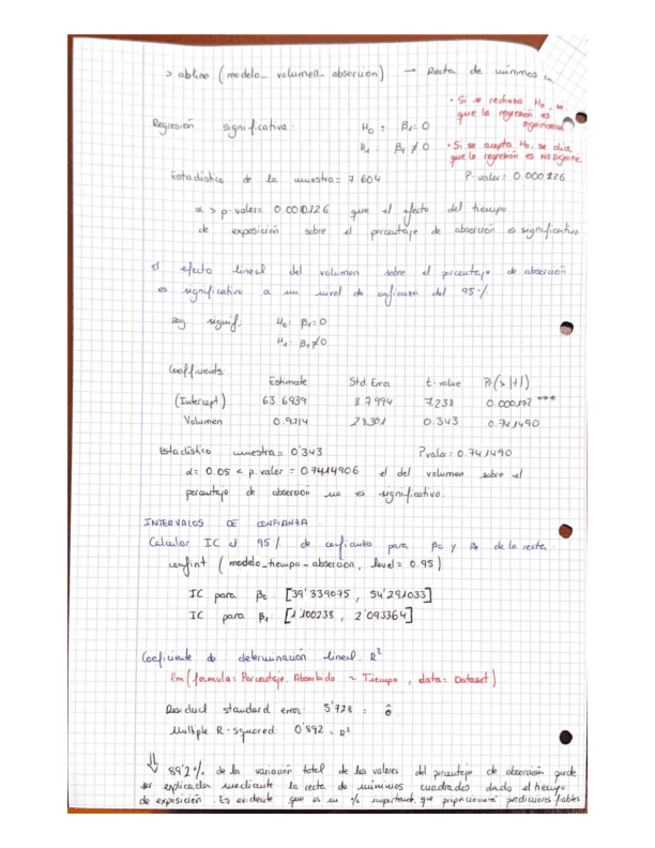 > abline (modelo_ volumen_ absorcion) → Recta de mínimos
• Si se rechaza H₀, se
que la regresión es
significativa
Regresión significativa: H₀: β₁=0
H₁: β₁≠0
• Si se acepta H₀, se dice
que la regresión es NO SIGNIF.
Estadístico de la muestra= 7.604 P-valor= 0.000126
α > p-valor= 0.000126 que el efecto del tiempo
de exposición sobre el porcentaje de absorción es significativo
el efecto lineal del volumen sobre el porcentaje de absorción
es significativo a un nivel de confianza del 95%
Reg signif. H₀: β₁=0
H₁: β₁≠0
Coefficients:
Estimate Std. Error t-value Pr(>|t|)
(Intercept) 63.6939 8.7994 7.238 0.000172 ***
Volumen 2.8301 0.343 0.741490
Estadístico muestra= 0'343 P valor= 0.741490
α= 0.05 < p.valor = 0.7414906 el del volumen sobre el
porcentaje de absorción no es significativo.
INTERVALOS DE CONFIANZA
Calcular IC al 95% de confianza para β₀ y β₁ de la recta.
confint (modelo_tiempo_absorcion, level= 0.95)
IC para β₀: [39'339075, 54'291033]
IC para β₁: [1'100238, 2'093364]
Coeficiente de determinación lineal. R²
lm(formula= Porcentaje.Absorbido ~ Tiempo, data= Dataset)
Residual standard error: 5'728 = σ̂
Multiple R-squared: 0'892 = R²
⇓ 89'2% de la variación total de los valores del porcentaje de absorción puede
ser explicada mediante la recta de mínimos cuadrados dado el tiempo
de exposición. Es evidente que es un % importante, que proporcionará predicciones fiables